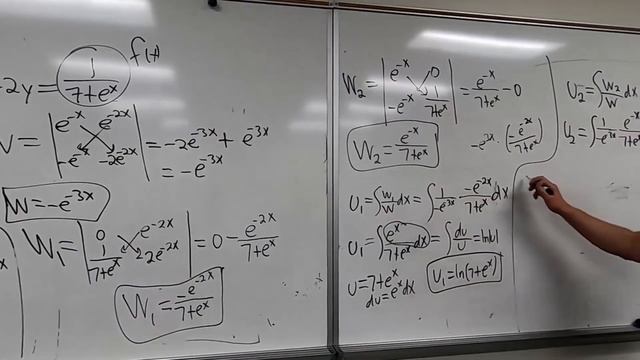 -2y = 1/(7+eˣ) f(x)
W = |e⁻ˣ e⁻²ˣ; -e⁻ˣ -2e⁻²ˣ| = -2e⁻³ˣ + e⁻³ˣ
= -e⁻³ˣ
W = -e⁻³ˣ
W₁ = |0 e⁻²ˣ; 1/(7+eˣ) 2e⁻²ˣ| = 0 - e⁻²ˣ/(7+eˣ)
W₁ = -e⁻²ˣ/(7+eˣ)
W₂ = |e⁻ˣ 0; -e⁻ˣ 1/(7+eˣ)| = e⁻ˣ/(7+eˣ) - 0
W₂ = e⁻ˣ/(7+eˣ)
-e³ˣ · (-e⁻²ˣ/(7+eˣ))
U₁ = ∫ W₁/W dx = ∫ 1/(-e⁻³ˣ) · -e⁻²ˣ/(7+eˣ) dx
U₁ = ∫ eˣ/(7+eˣ) dx = ∫ du/u = ln|u|
u = 7+eˣ
du = eˣdx
U₁ = ln(7+eˣ)
U₂ = ∫ W₂/W dx
U₂ = ∫ 1/(-e⁻³ˣ) e⁻ˣ/(7+eˣ)